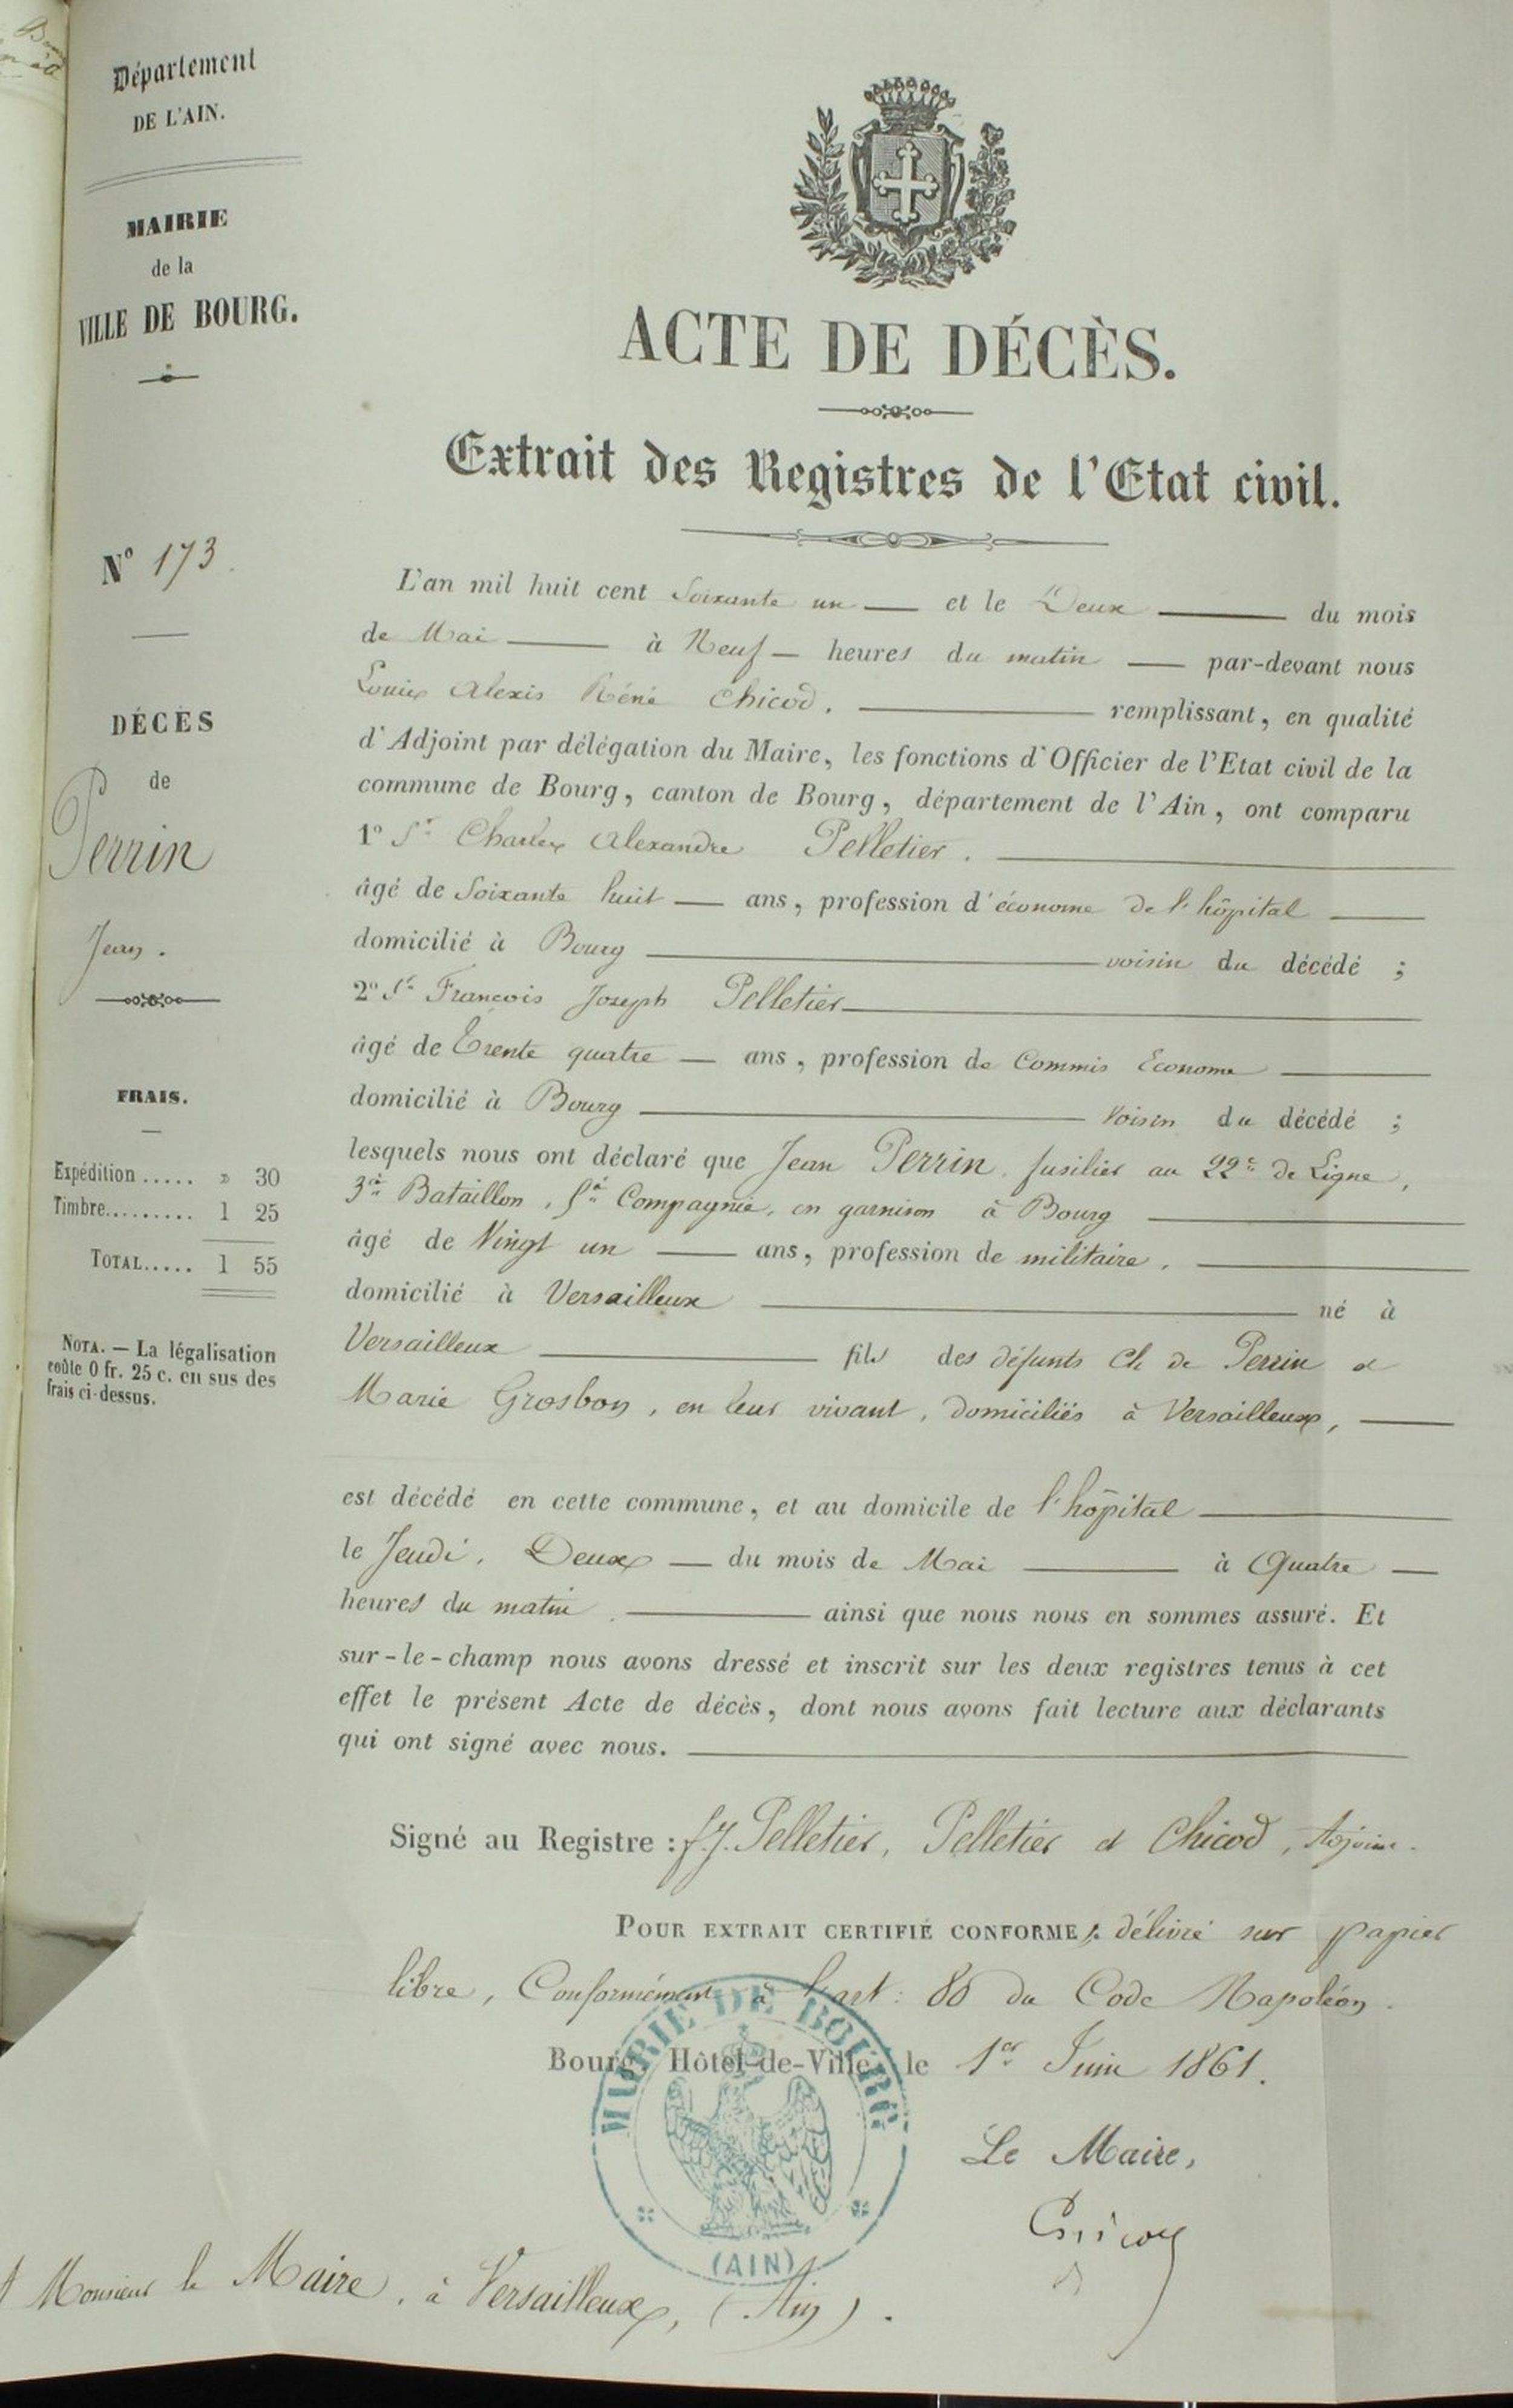 Département
DE L'AIN.
MAIRIE
de la
VILLE DE BOURG.
ACTE DE DÉCÈS.
Extrait des Registres de l'Etat civil.
N° 173.
L'an mil huit cent Soixante un et le Deux du mois
de Mai à Neuf heures du matin par-devant nous
Louis Alexis Réné Chicod. remplissant, en qualité
d'Adjoint par délégation du Maire, les fonctions d'Officier de l'Etat civil de la
commune de Bourg, canton de Bourg, département de l'Ain, ont comparu
1° Sr Charles Alexandre Pelletier.
âgé de Soixante huit ans, profession d'économe de l'hôpital
domicilié à Bourg voisin du décédé ;
2° Sr Francois Joseph Pelletier
âgé de Trente quatre ans, profession de Commis Econome
domicilié à Bourg Voisin du décédé ;
lesquels nous ont déclaré que Jean Perrin, fusilier au 22e de Ligne,
3e Bataillon, 5e Compagnie, en garnison à Bourg
âgé de Vingt un ans, profession de militaire,
domicilié à Versailleux né à
Versailleux fils des défunts Ch de Perrin et
Marie Grosbon, en leur vivant, domiciliés à Versailleux,
est décédé en cette commune, et au domicile de l'hôpital
le Jeudi, Deux du mois de Mai à Quatre
heures du matin ainsi que nous nous en sommes assuré. Et
sur-le-champ nous avons dressé et inscrit sur les deux registres tenus à cet
effet le présent Acte de décès, dont nous avons fait lecture aux déclarants
qui ont signé avec nous.
Signé au Registre : f.j. Pelletier, Pelletier et Chicod, Adjoint.
POUR EXTRAIT CERTIFIÉ CONFORME ; délivré sur papier
libre, Conformément à l'art : 80 du Code Napoléon.
Bourg, Hôtel-de-Ville, le 1er Juin 1861.
Le Maire,
Chicod
MAIRIE DE BOURG
(AIN)
A Monsieur le Maire, à Versailleux, (Ain).
DÉCÈS
de
Perrin
Jean.
FRAIS.
Expédition..... » 30
Timbre......... 1 25
TOTAL..... 1 55
NOTA. — La légalisation
coûte 0 fr. 25 c. en sus des
frais ci-dessus.